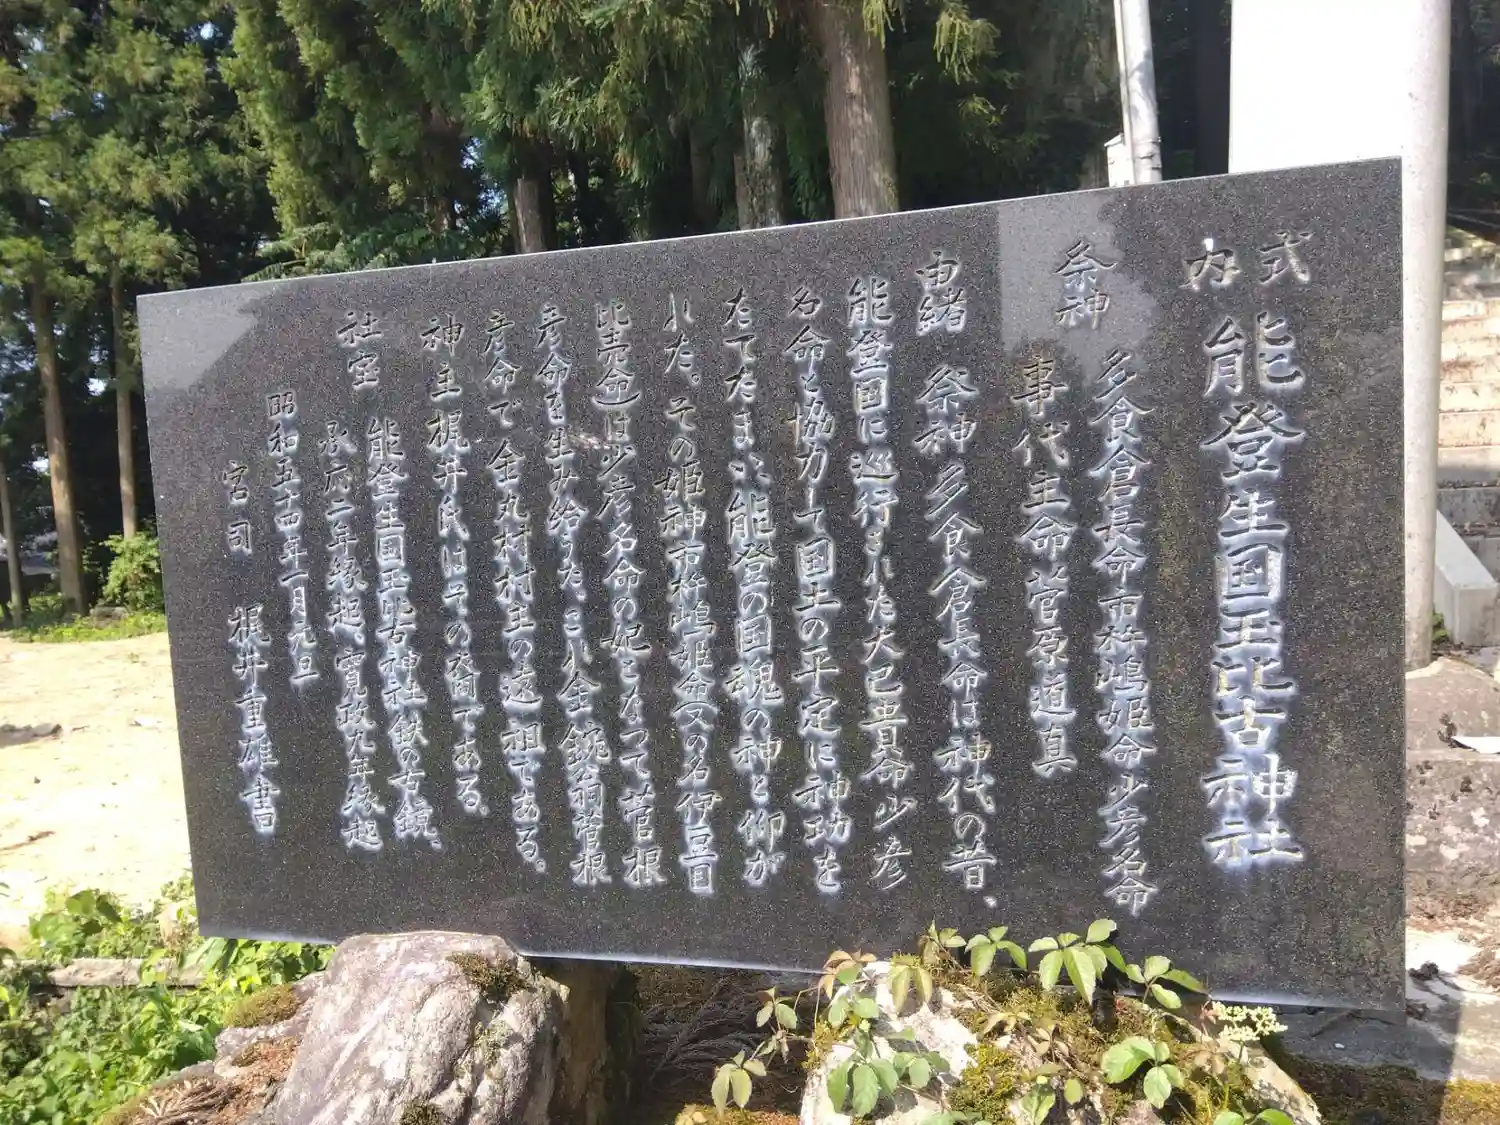 式内 能登生国玉比古神社
祭神 多食倉長命市杵嶋姫命少彦名命
事代主命菅原道真
由緒 祭神多食倉長命は神代の昔、
能登国に巡行された大己貴命少彦
名命と協力して国土の平定に神功を
たてたまい能登の国魂の神と仰が
れた。その姫神市杵嶋姫命(又の名伊豆目
比売命)は少彦名命の妃となつて菅根
彦命を生み給うた。これ金鋺翁菅根
彦命で金丸村村主の遠祖である。
神主梶井氏はその裔である。
社宝 能登生国玉比古神社鉄の古鏡、
承府二年縁起、寛政九年縁起
昭和五十四年一月元旦
宮司 梶井重雄書